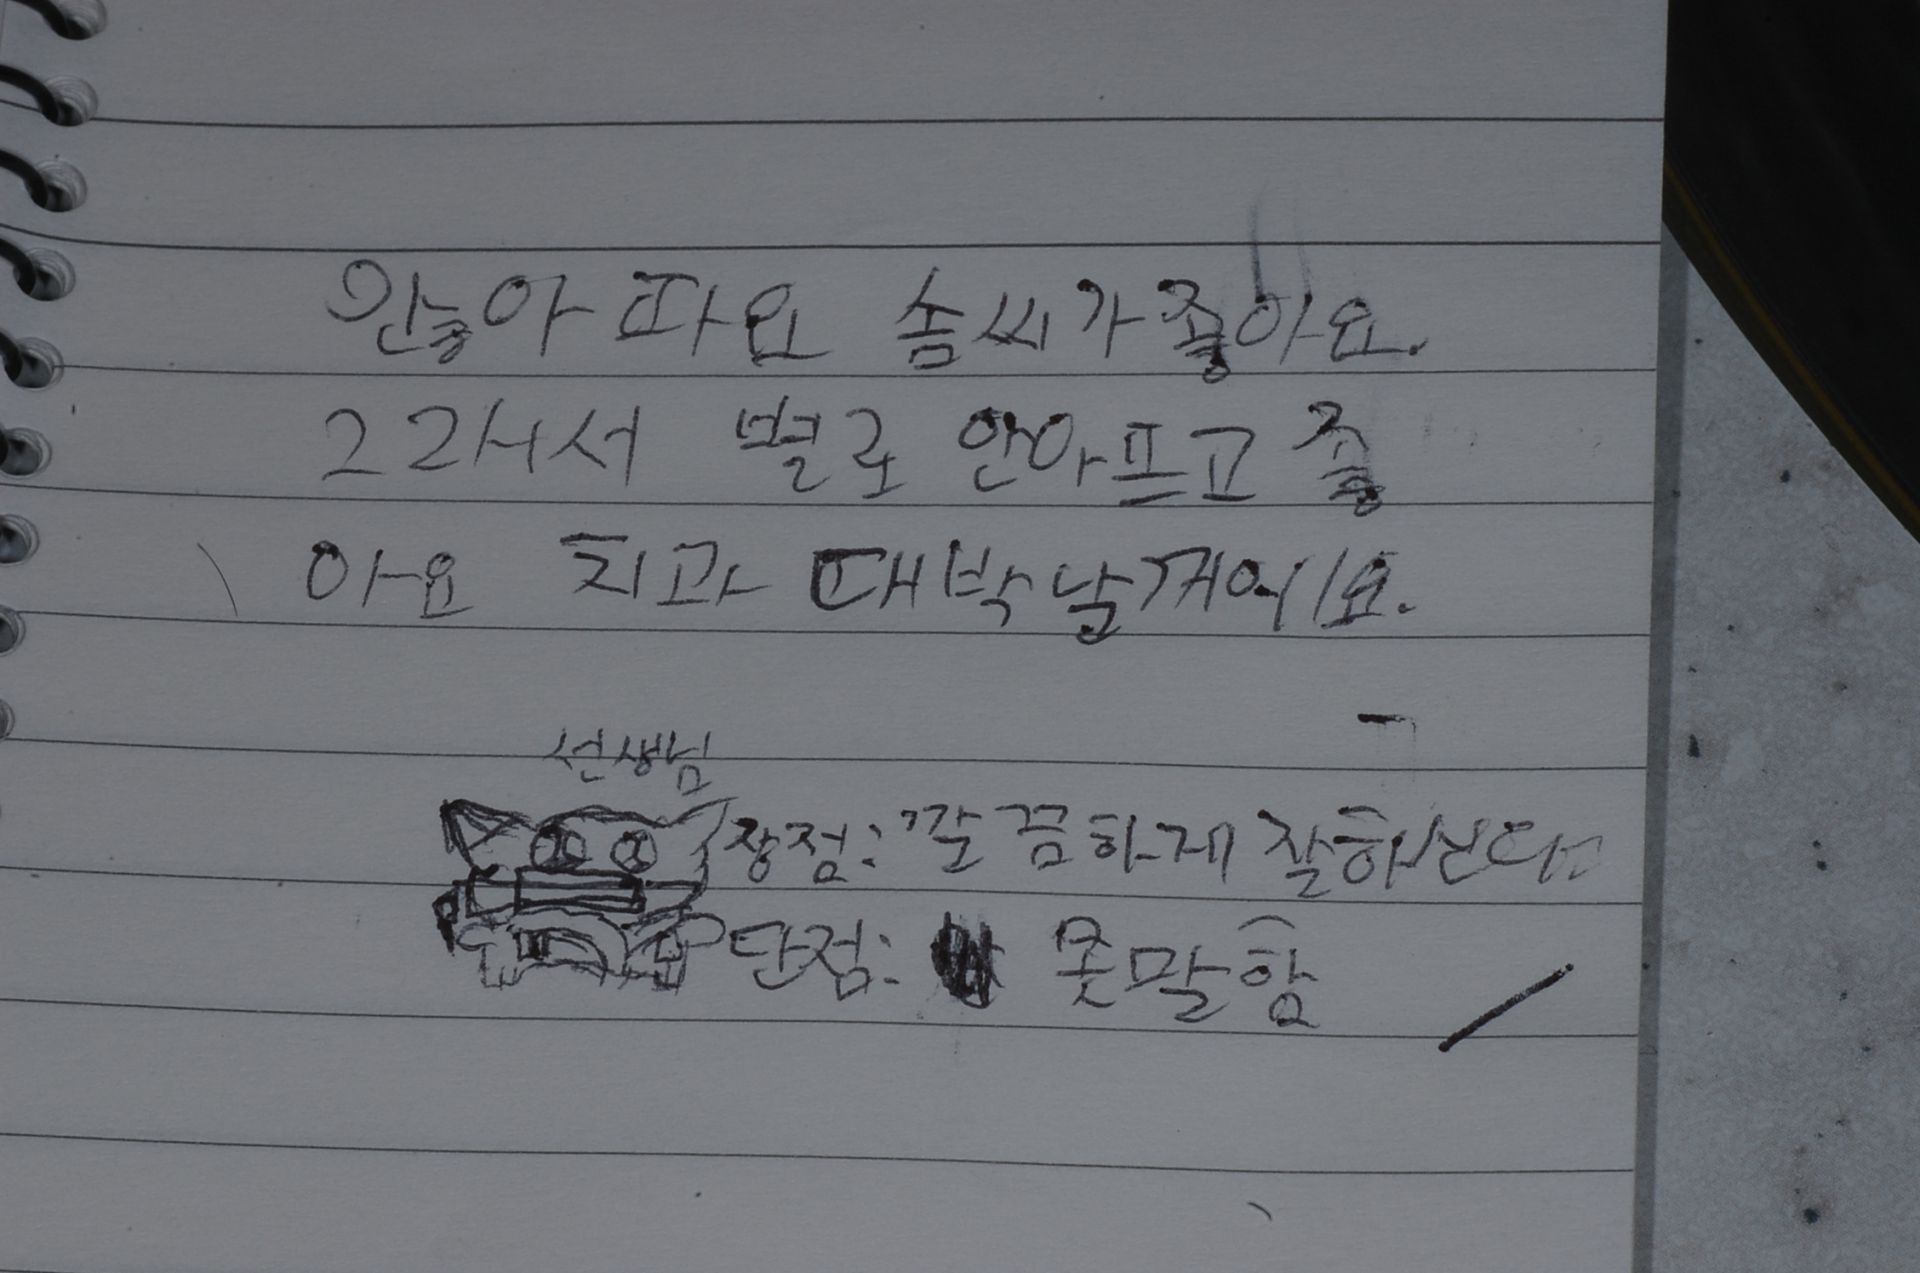 안농아 따요 솜씨가좋아요.
그래서 별로 안아프고 좋
아요 치과 대박날거에요.
선생님
장점: 깔끔하게 잘하신다
단점: 못말함